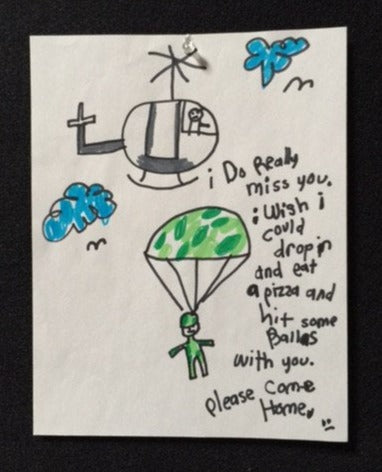 i Do Really
miss you.
i Wish i
could
drop in
and eat
a pizza and
hit some
Ballas
with you.
please come
Home.